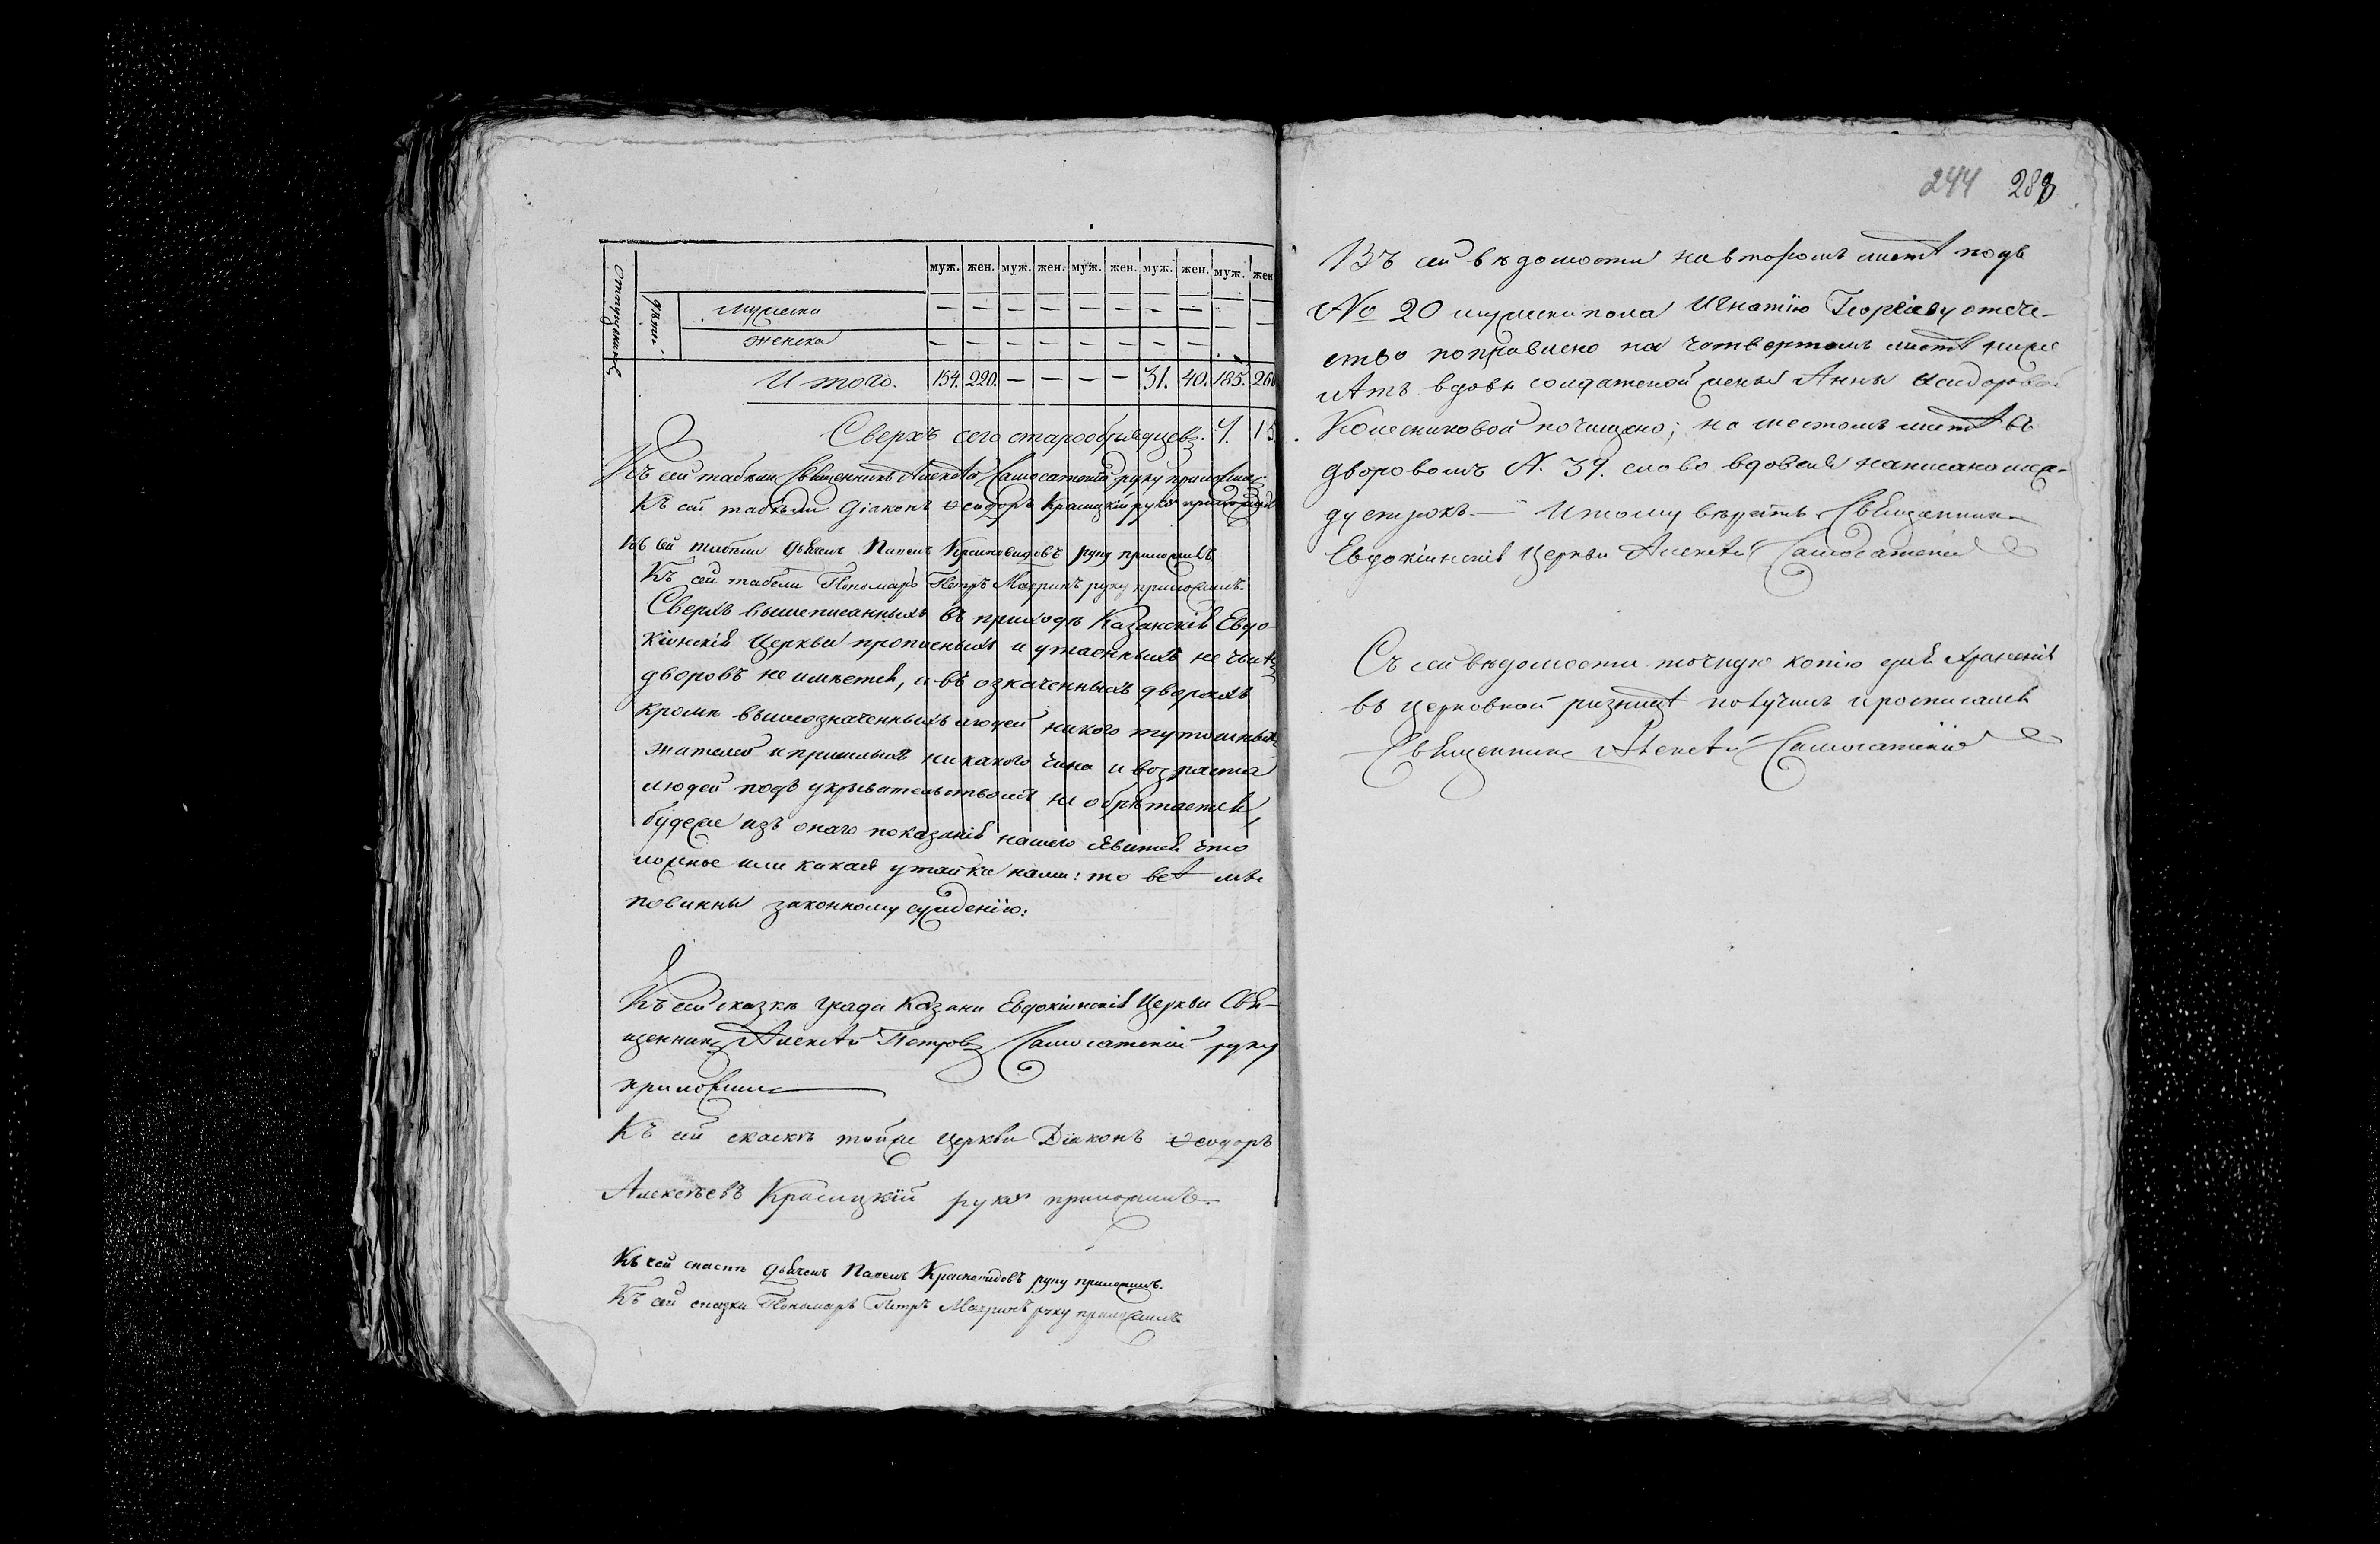 муж. жен. муж. жен. муж. жен. муж. жен. муж. жен
дѣти
мужеска — — — — — — — — — —
женска — — — — — — — — — —
Итого. 154. 220. — — — — 31. 40. 185. 260
Сверхъ сего старообрядцевъ. 7. 15.
Къ сей табели Священникъ Алексѣй Самосатскій руку приложилъ
Къ сей табели Діаконъ Ѳеодоръ Красицкій руку приложилъ
Къ сей табели дьячекъ Павелъ руку приложилъ
Къ сей табели Пономарь Петръ Макринъ руку приложилъ.
Сверхъ вышеписанныхъ въ приходѣ Казанскія Евдо-
кіинскія Церкви прописныхъ и утаенныхъ не
дворовъ не имѣется, и въ означенныхъ дворахъ
кромѣ вышеозначенныхъ людей никого тутошныхъ
жителей и пришлыхъ никакого чина и возраста
людей подъ укрывательствомъ не обрѣтается,
будеже изъ онаго показанія нашего явится что
ложное или какая утайка нами: то всѣ мы
повинны законному сужденію:
Къ сей сказкѣ града Казани Евдокіинскія Церкви Свя-
щенникъ Алексѣй Петровъ Самосатскій руку
приложилъ
Къ сей скаскѣ тойже церкви Діаконъ Ѳеодоръ
Алексѣевъ Красицкій руку приложилъ.
Къ сей скаскѣ дьячекъ Павелъ руку приложилъ.
Къ сей сказки Пономарь Петръ Макринъ руку приложилъ
244 288
Въ сей вѣдомости на второмъ листѣ подъ
№ 20 мужеска пола Игнатію Георгіеву отече-
ство поправлено на четвертомъ листѣ ниже
лѣтъ вдовы солдатской жены Анны Исидоровой
Колесниковой почищено; на шестомъ листѣ въ
дворовомъ №. 39. слово вдовая написано меж-
ду строкъ. — Итому вѣрить Священникъ
Евдокіинскія Церкви Алексѣй Самосатскій
Съ сей вѣдомости точную копію для храненія
въ церковной ризницѣ получилъ и росписался
Священникъ Алексѣй Самосатскій